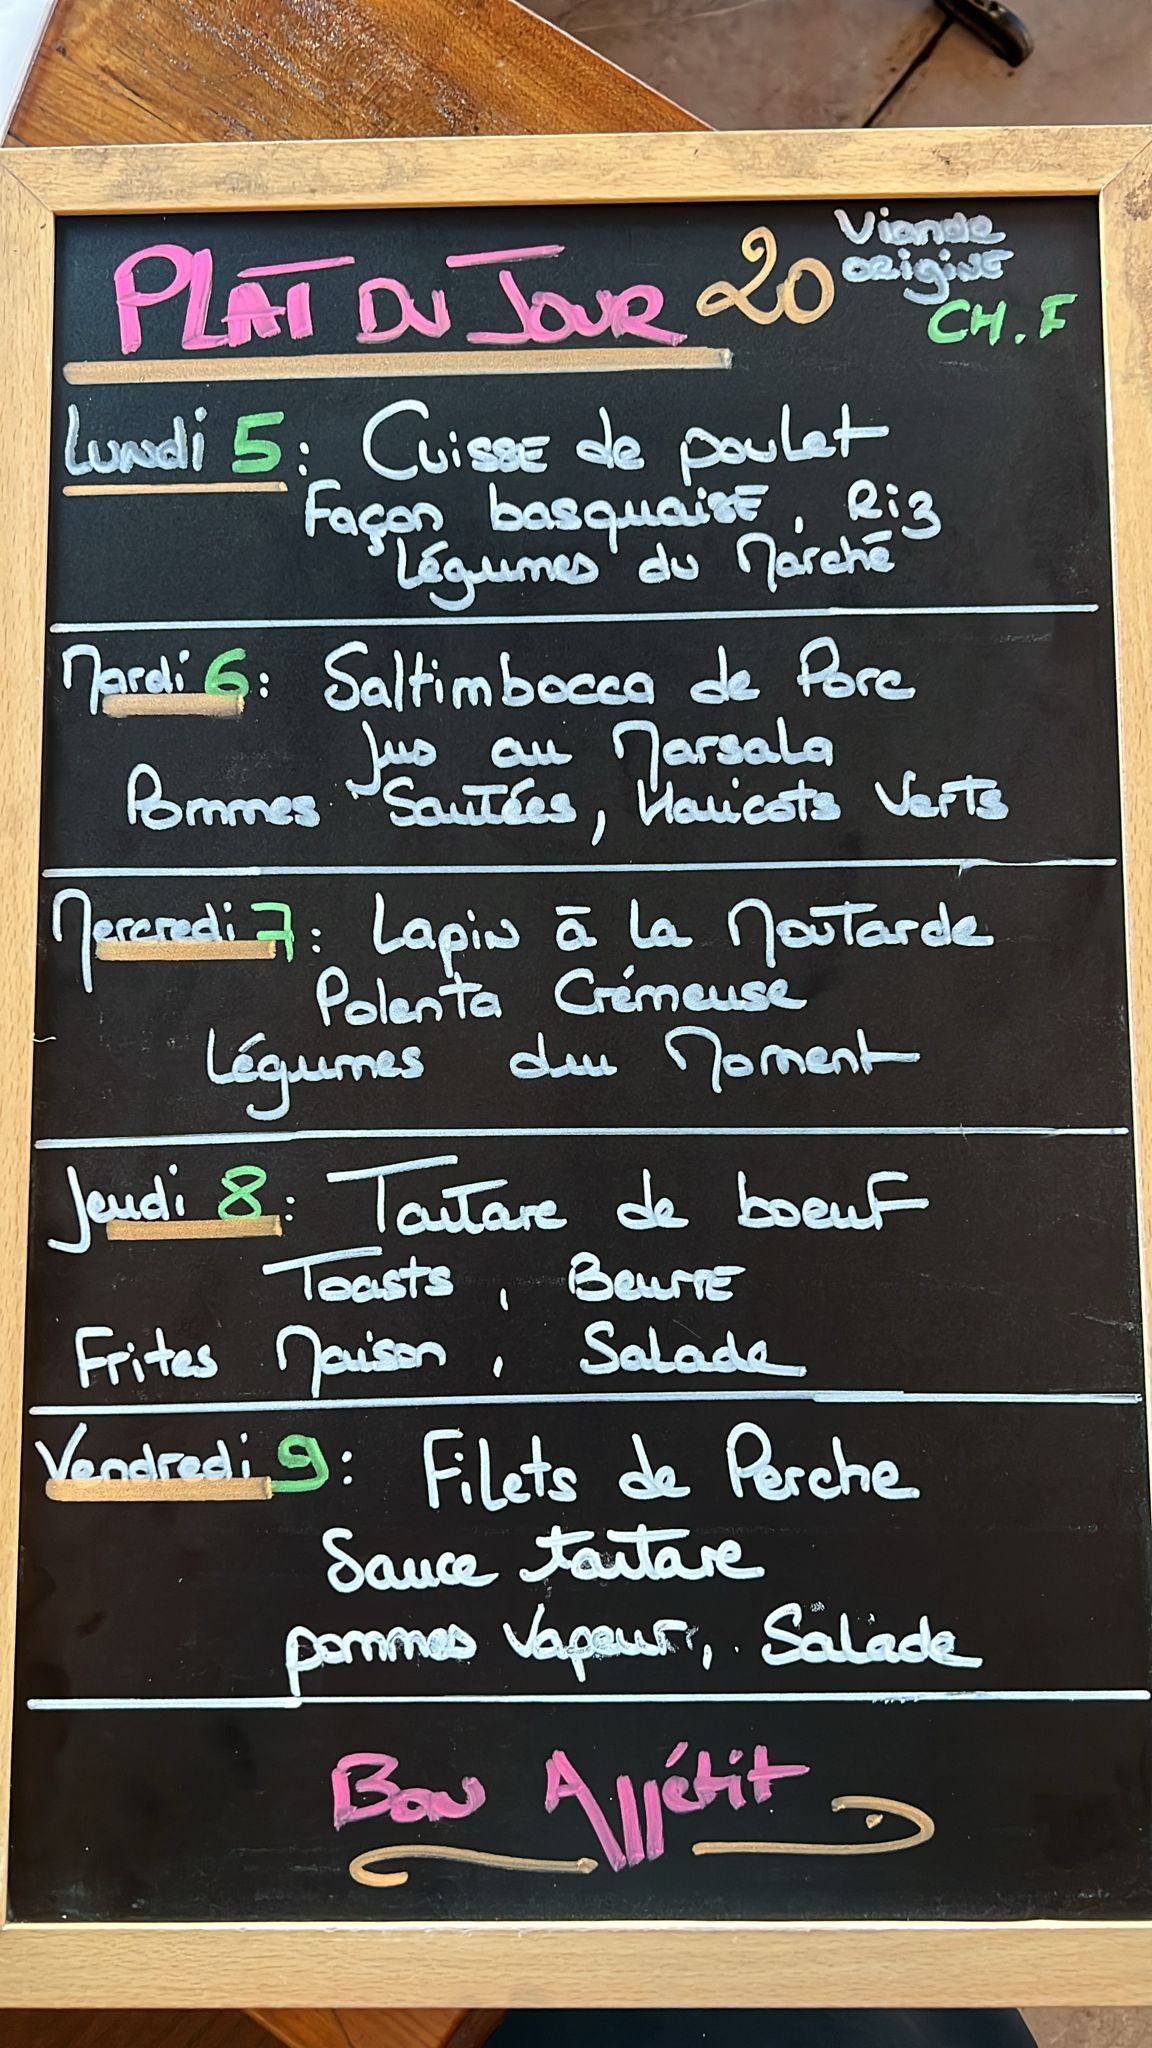 PLAT DU JOUR 20
Viande
origine
CH. F
Lundi 5 : Cuisse de poulet
Façon basquaise, Riz
Légumes du Marché
Mardi 6 : Saltimbocca de Porc
Jus au Marsala
Pommes Sautées, Haricots Verts
Mercredi 7 : Lapin à la Moutarde
Polenta Crémeuse
Légumes du Moment
Jeudi 8 : Tartare de boeuf
Toasts, Beurre
Frites Maison, Salade
Vendredi 9 : Filets de Perche
Sauce tartare
pommes Vapeur, Salade
Bon Appétit